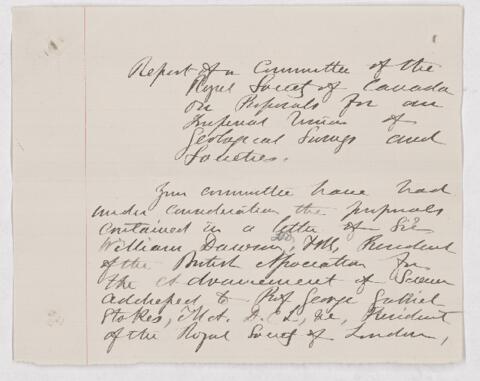 Report of a Committee of the
Royal Society of Canada
on Proposals for an
Imperial Union of
Geological Surveys and
Societies.
Your committee have had
under consideration the proposals
contained in a letter of Sir
William Dawson, President
of the British Association for
the Advancement of Science
addressed to Prof George Gabriel
Stokes, M.A. D.C.L, &c, President
of the Royal Society of London,